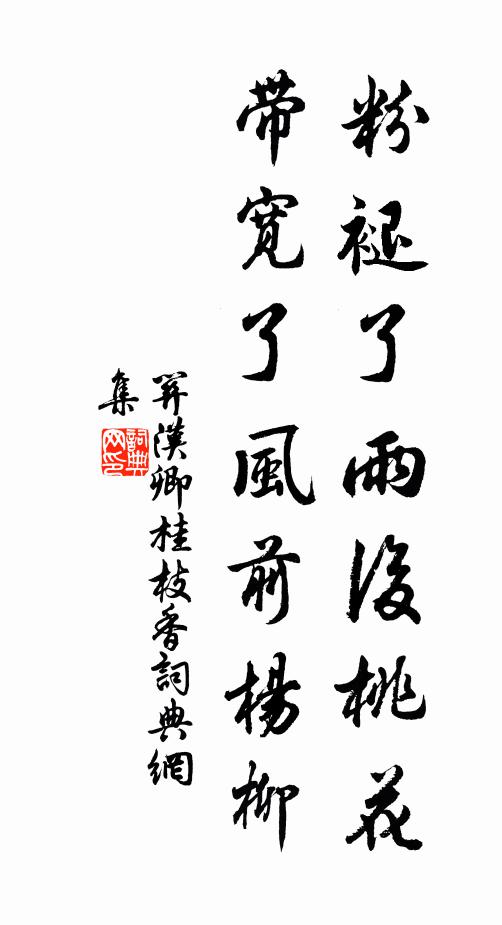 粉褪了雨後桃花
带宽了風前楊柳
関漢卿桂枝香詞典網
集
詞典
网印